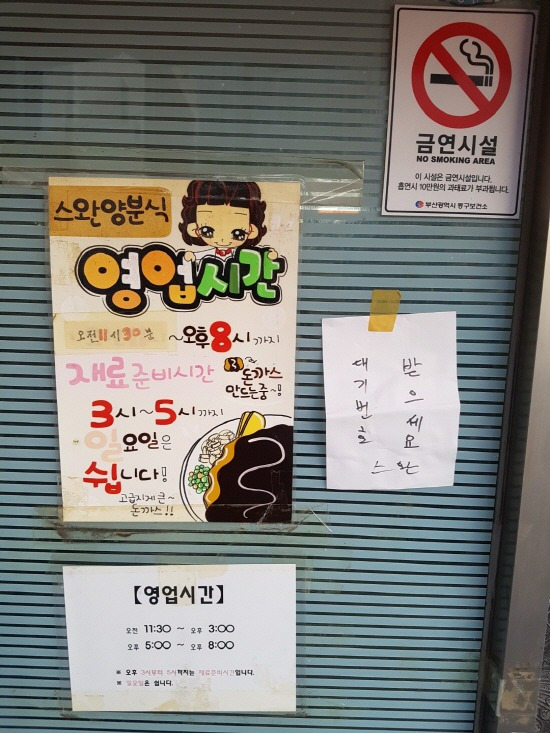 금연시설
NO SMOKING AREA
이 시설은 금연시설입니다.
흡연시 10만원의 과태료가 부과됩니다.
부산광역시 동구보건소
스완양분식
영업시간
오전11시30분 ~오후8시까지
재료준비시간
돈까스
만드는중~!
3시~5시까지
일요일은
쉽니다!
고급지게 큰~
돈까스!!
대기번호
받으세요
스완
【영업시간】
오전 11:30 ~ 오후 3:00
오후 5:00 ~ 오후 8:00
※ 오후 3시부터 5시까지는 재료준비시간입니다.
※ 일요일은 쉽니다.